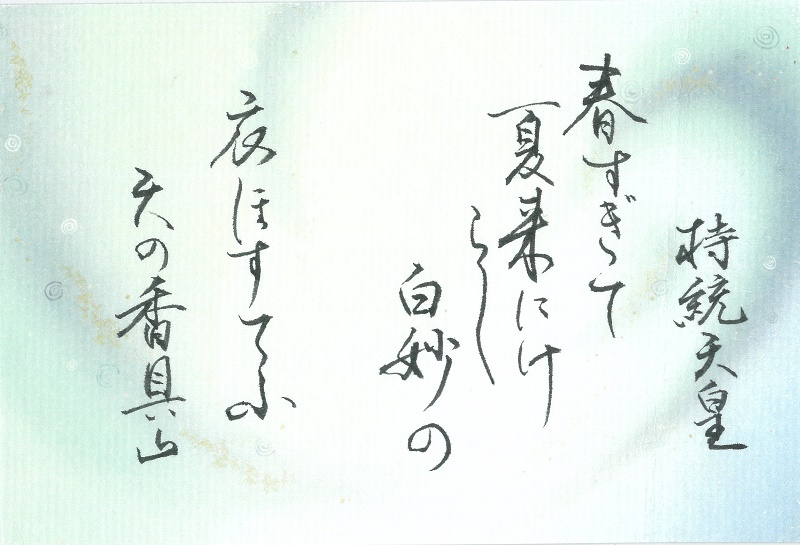 持統天皇
春すぎて
夏来にけ
らし
白妙の
衣ほすてふ
天の香具山